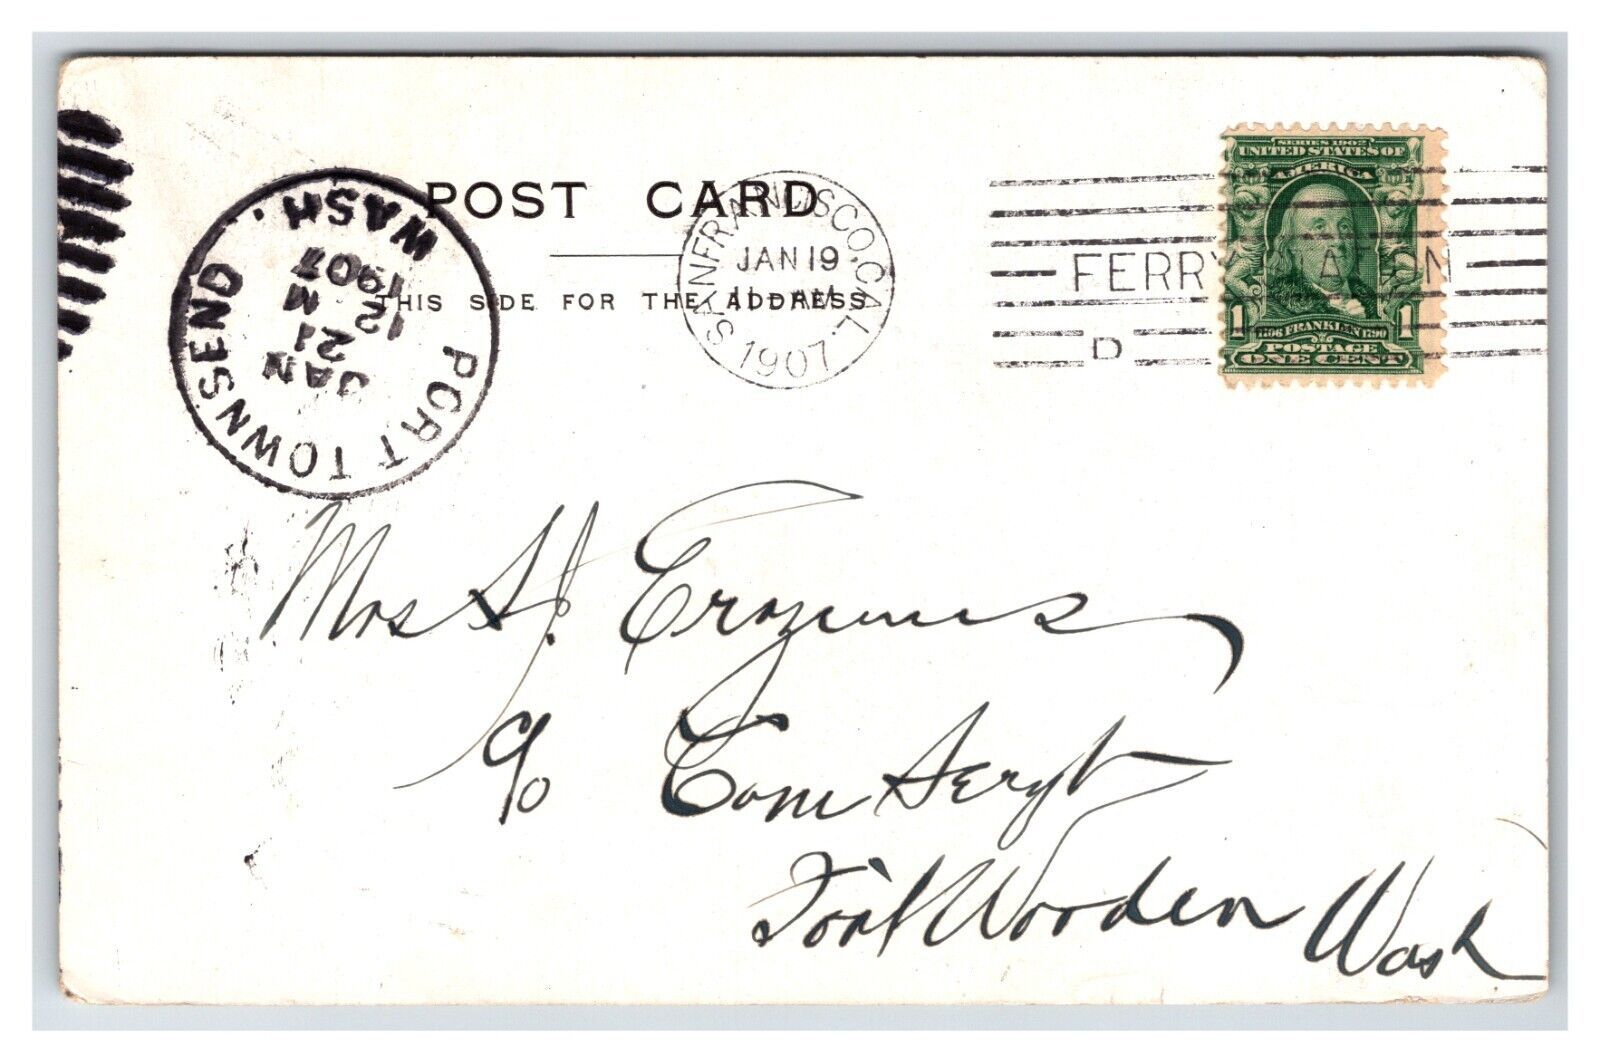 POST CARD
THIS SIDE FOR THE ADDRESS
PORT TOWNSEND WASH.
JAN
21
12 M
1907
SAN FRANCISCO, CAL.
JAN 19
11 AM
1907
FERRY STATION
D
SERIES 1902
UNITED STATES OF
AMERICA
1 1
1706 FRANKLIN 1790
POSTAGE
ONE CENT
Mrs S. J. Erazmus
c/o Com Sergt
Fort Worden Wash